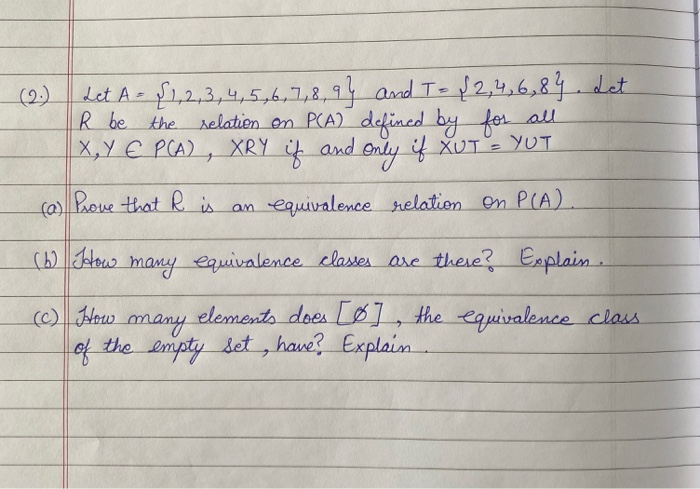 (2.) Let A = {1,2,3,4,5,6,7,8,9} and T = {2,4,6,8}. Let
R be the relation on P(A) defined by for all
X,Y ∈ P(A), XRY if and only if XUT = YUT
(a) Prove that R is an equivalence relation on P(A).
(b) How many equivalence classes are there? Explain.
(c) How many elements does [Ø], the equivalence class
of the empty set, have? Explain.